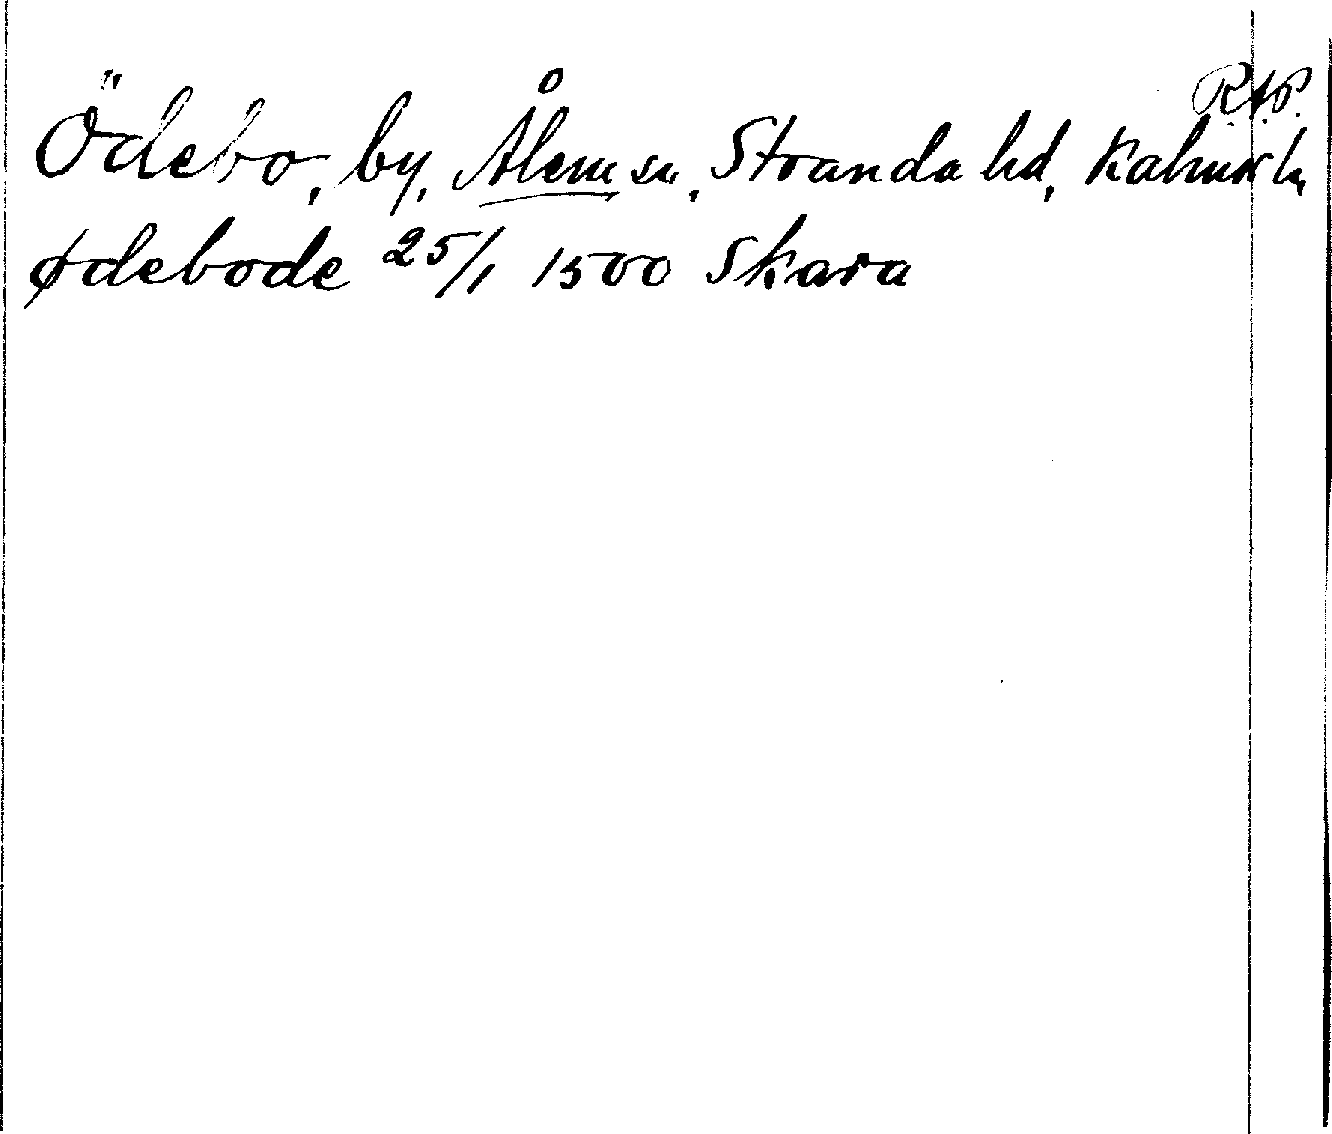 R.A.P.
Ödebo, by, Ålem sn, Stranda hd, Kalmar ln
ødebode 25/1 1500 Skara